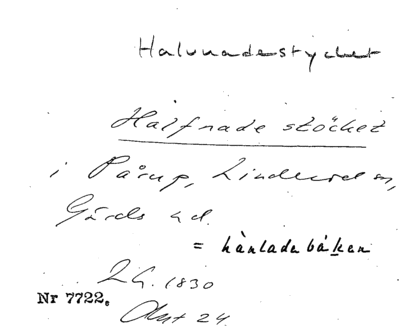 Halvnadestycket
Halfnade stöcket
i Pårup, Linderöd sn,
Gärds hd.
= hànladabåken
LG. 1830
Nr 7722.
Akt 24.